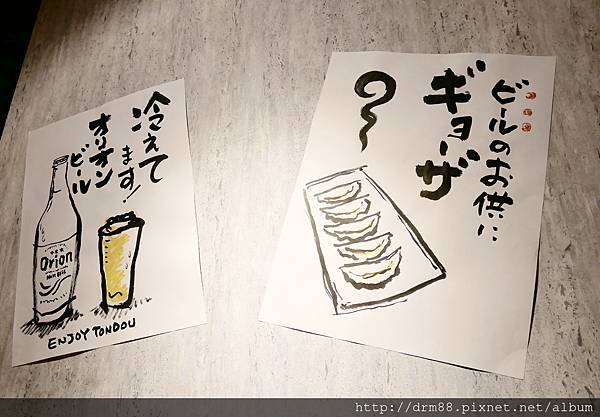 冷えて
ます!
オリオン
ビール
Orion
ENJOY TONDOU
ビールのお供に
ギョーザ
http://drm88.pixnet.net/album